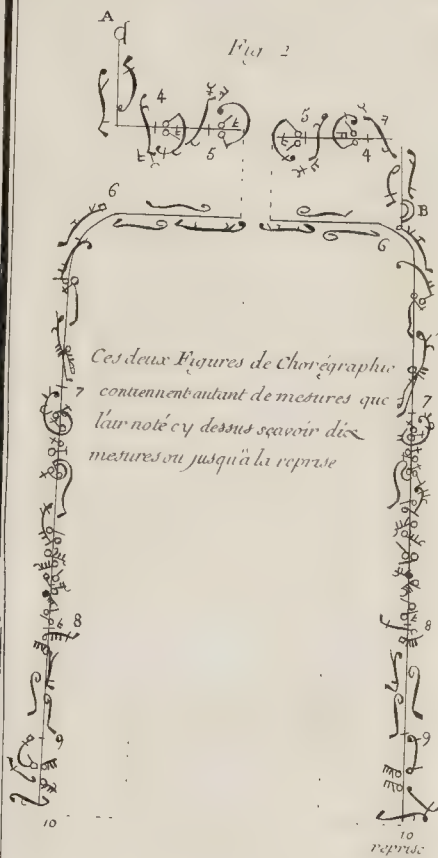 A
Fig 2
4
5
5
4
B
6
6
Ces deux Figures de Chorégraphie
contiennent autant de mesures que
l'air noté cy dessus sçavoir dix
mesures ou jusqu'à la reprise
7
7
8
8
9
9
10
10
reprise